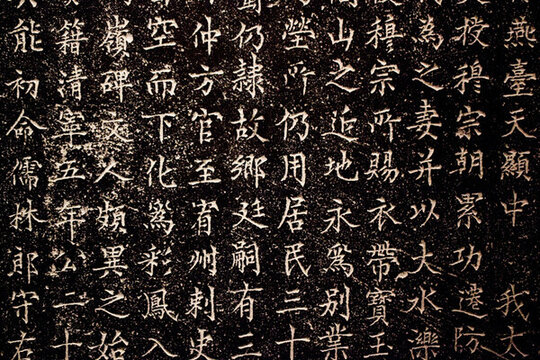 燕臺天顯中 我太
投穆宗朝累功遷防
為之妻并以大水濼
穆宗所賜衣帶寶玉
山之近地永爲別業
塋所仍用居民三十
仍隸故鄉廷嗣有三
仲方官至州刺史
空而下化爲彩鳳入
嶺碑文人頗異之始
籍清寧五年公二十
能初命儒林郎守右